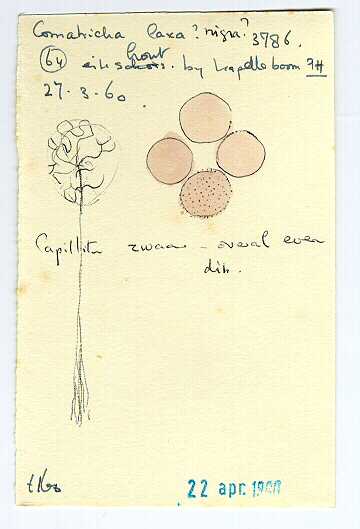 Comatricha laxa? nigra? 3786.
hout
64 eikschors. by Kapelleboom
27.3.60
Capillitia zwaar – overal even
dik.
22 apr. 1960